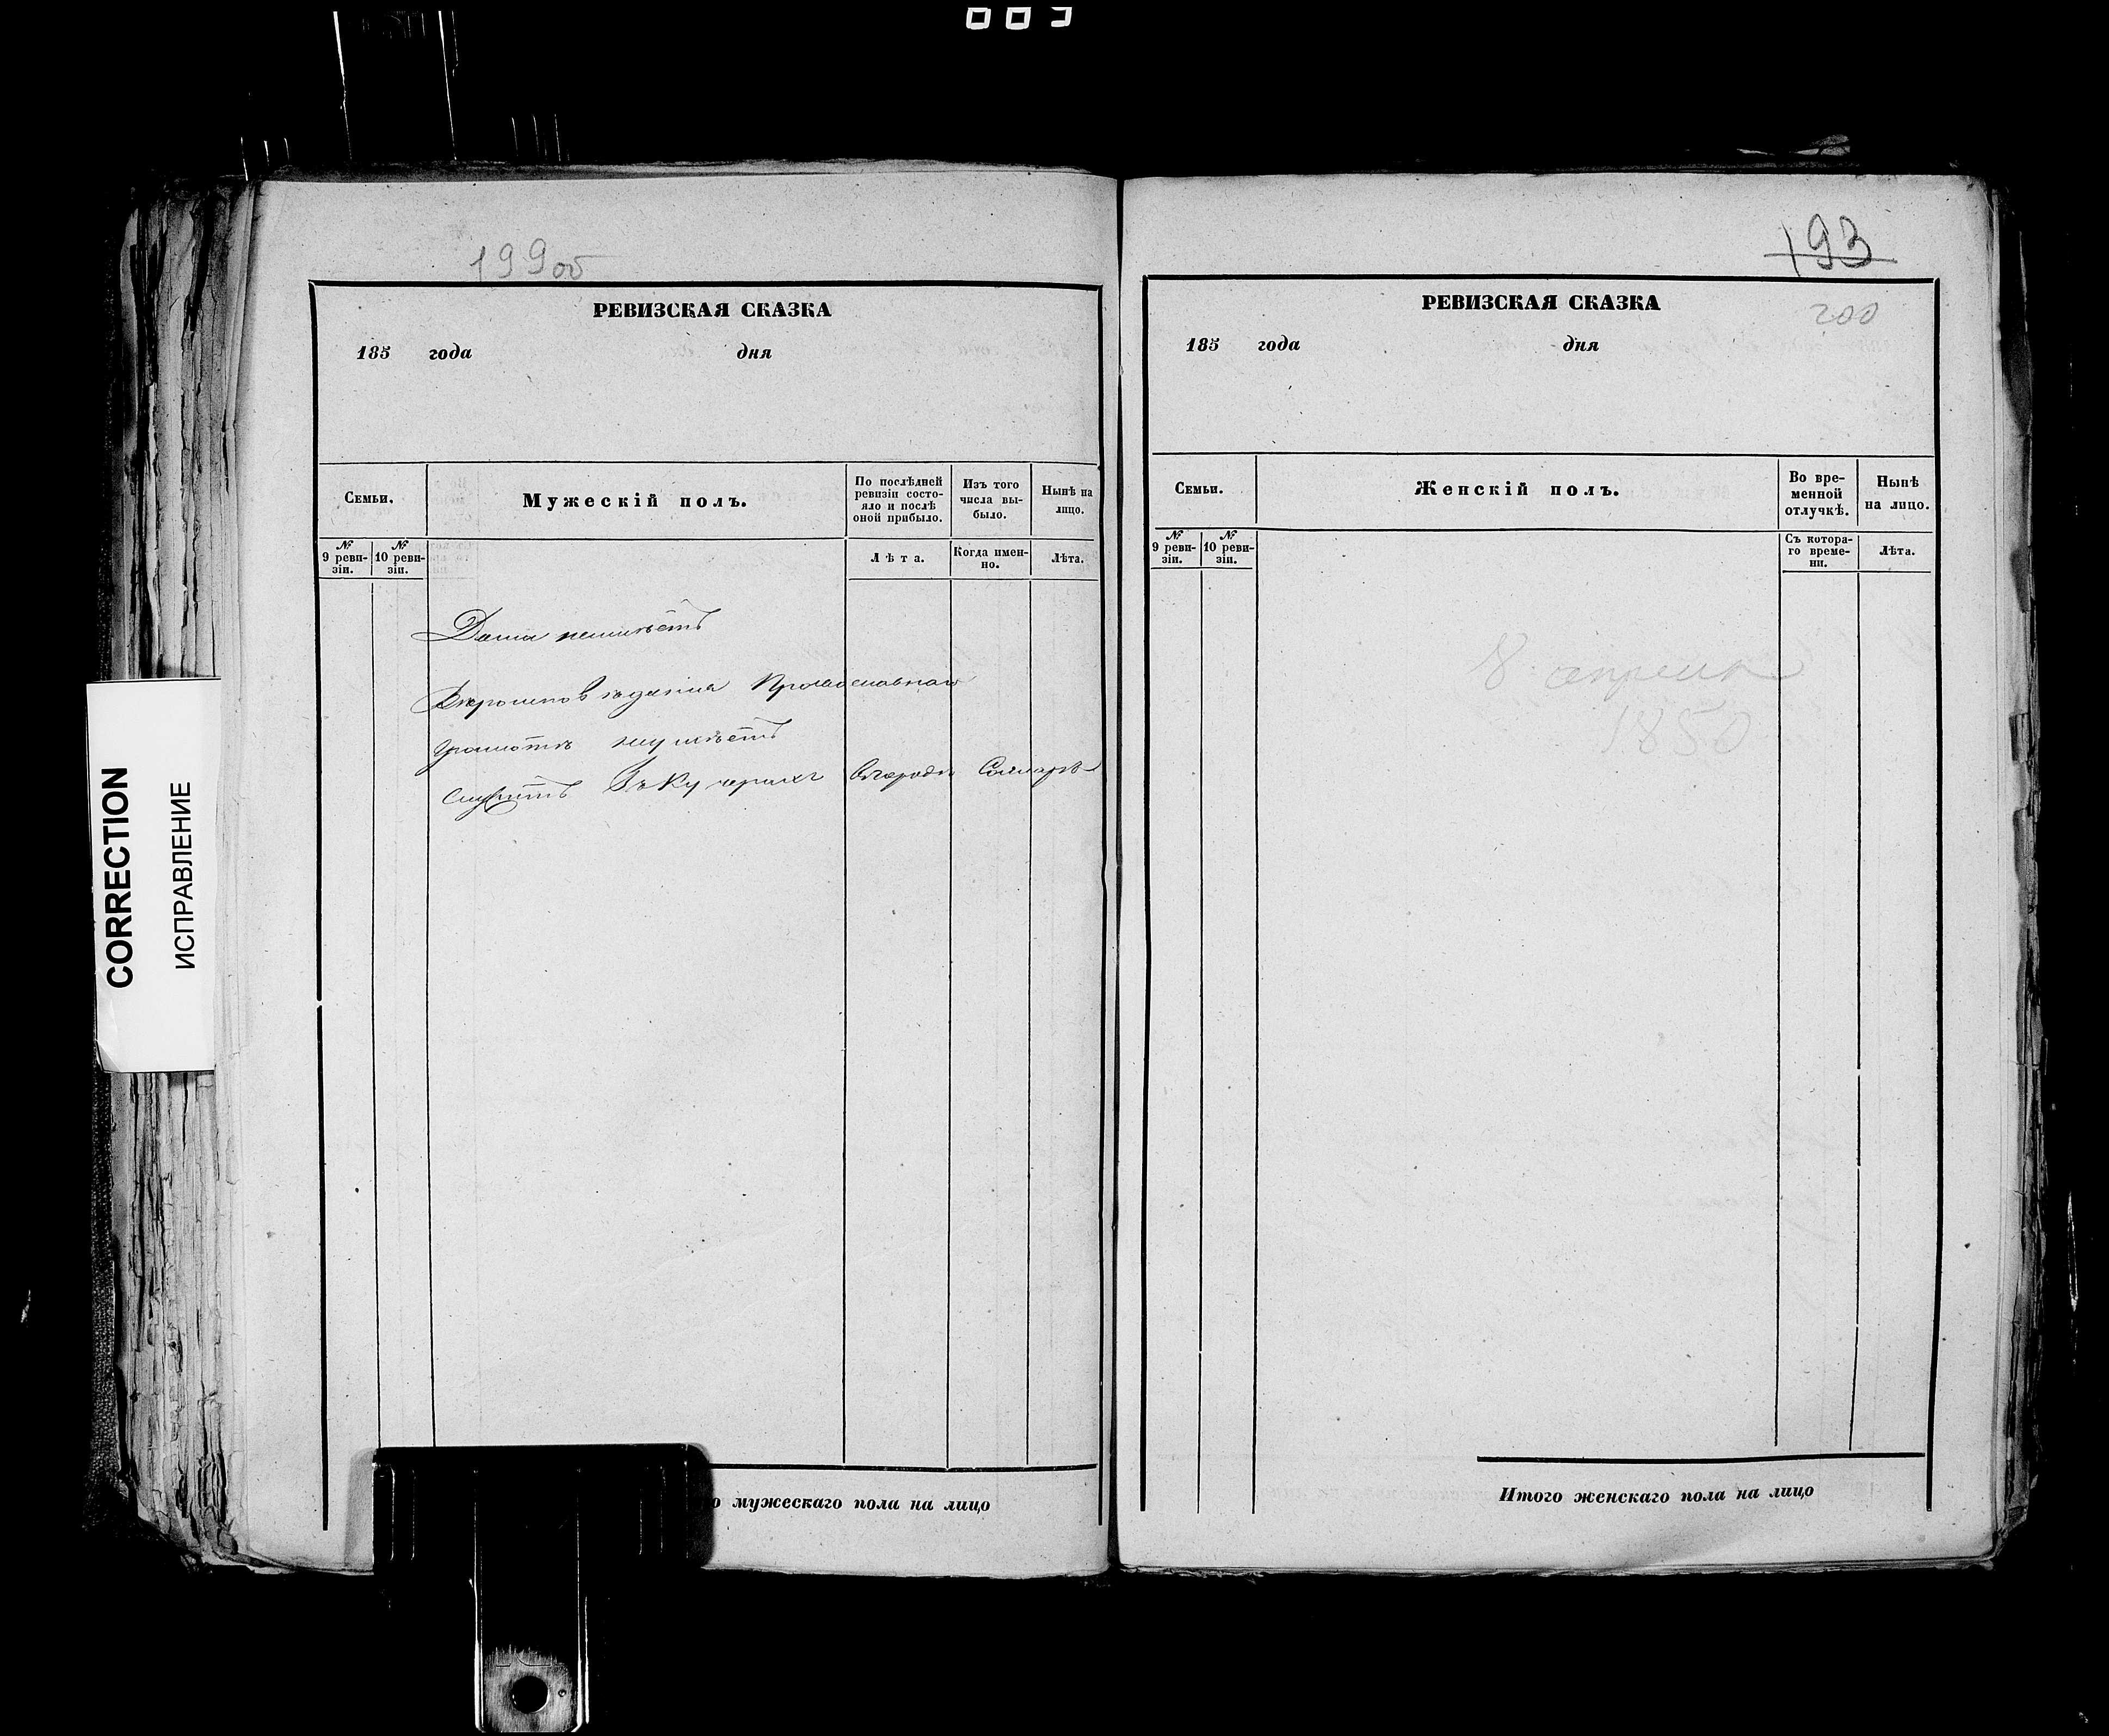 199об
РЕВИЗСКАЯ СКАЗКА
185 года дня
Семьи.
Мужескій полъ.
По послѣдней ревизіи состояло и послѣ оной прибыло.
Изъ того числа выбыло.
Нынѣ на лицо.
№ 9 ревизіи.
№ 10 ревизіи.
Лѣта.
Когда именно.
Лѣта.
Дома неимѣетъ
Вѣроисповѣданія Православнаго
Грамотѣ неумѣетъ
Служитъ Въ Кучерахъ вгородѣ Самарѣ
о мужескаго пола на лицо
CORRECTION
ИСПРАВЛЕНИЕ
193
200
РЕВИЗСКАЯ СКАЗКА
185 года дня
Семьи.
Женскій полъ.
Во временной отлучкѣ.
Нынѣ на лицо.
№ 9 ревизіи.
№ 10 ревизіи.
Съ котораго времени.
Лѣта.
8 апреля
1850
Итого женскаго пола на лицо